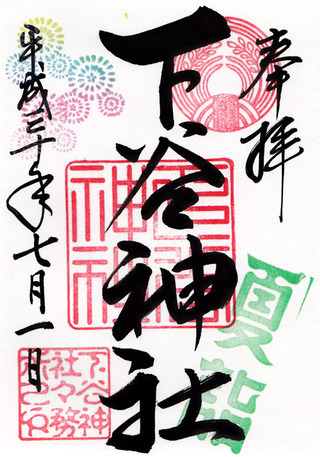 奉拝
下谷神社
平成三十年七月一日
夏詣
下谷神
社々務
所之印